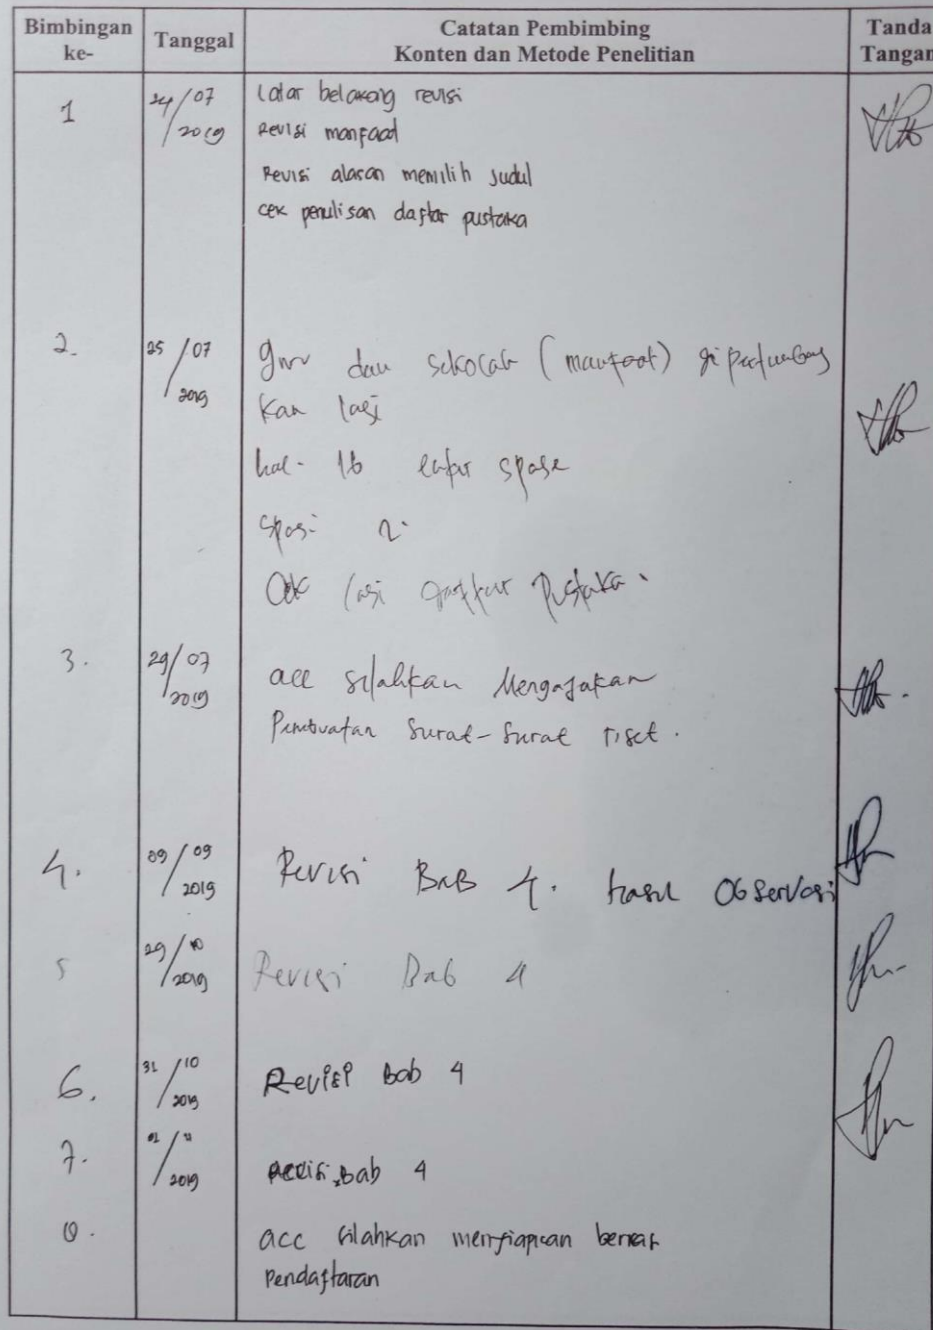 Bimbingan ke- Tanggal Catatan Pembimbing Konten dan Metode Penelitian Tanda Tangan
1 24/07 2019 Latar belakang revisi
Revisi manfaat
Revisi alasan memilih judul
cek penulisan daftar pustaka
2. 25/07 2019 guru dan sekolah (manfaat) di
kan lagi
hal. 16 spase
spasi 2.
Cek lagi daftar Pustaka.
3. 29/07 2019 acc silahkan Mengajakan
Pembuatan Surat-Surat riset.
4. 09/09 2019 Revisi BAB 4. hasil Observasi
5 29/10 2019 Revisi Bab 4
6. 31/10 2019 Revisi Bab 4
7. 01/11 2019 Revisi Bab 4
8. acc silahkan menyiapkan berkas
Pendaftaran